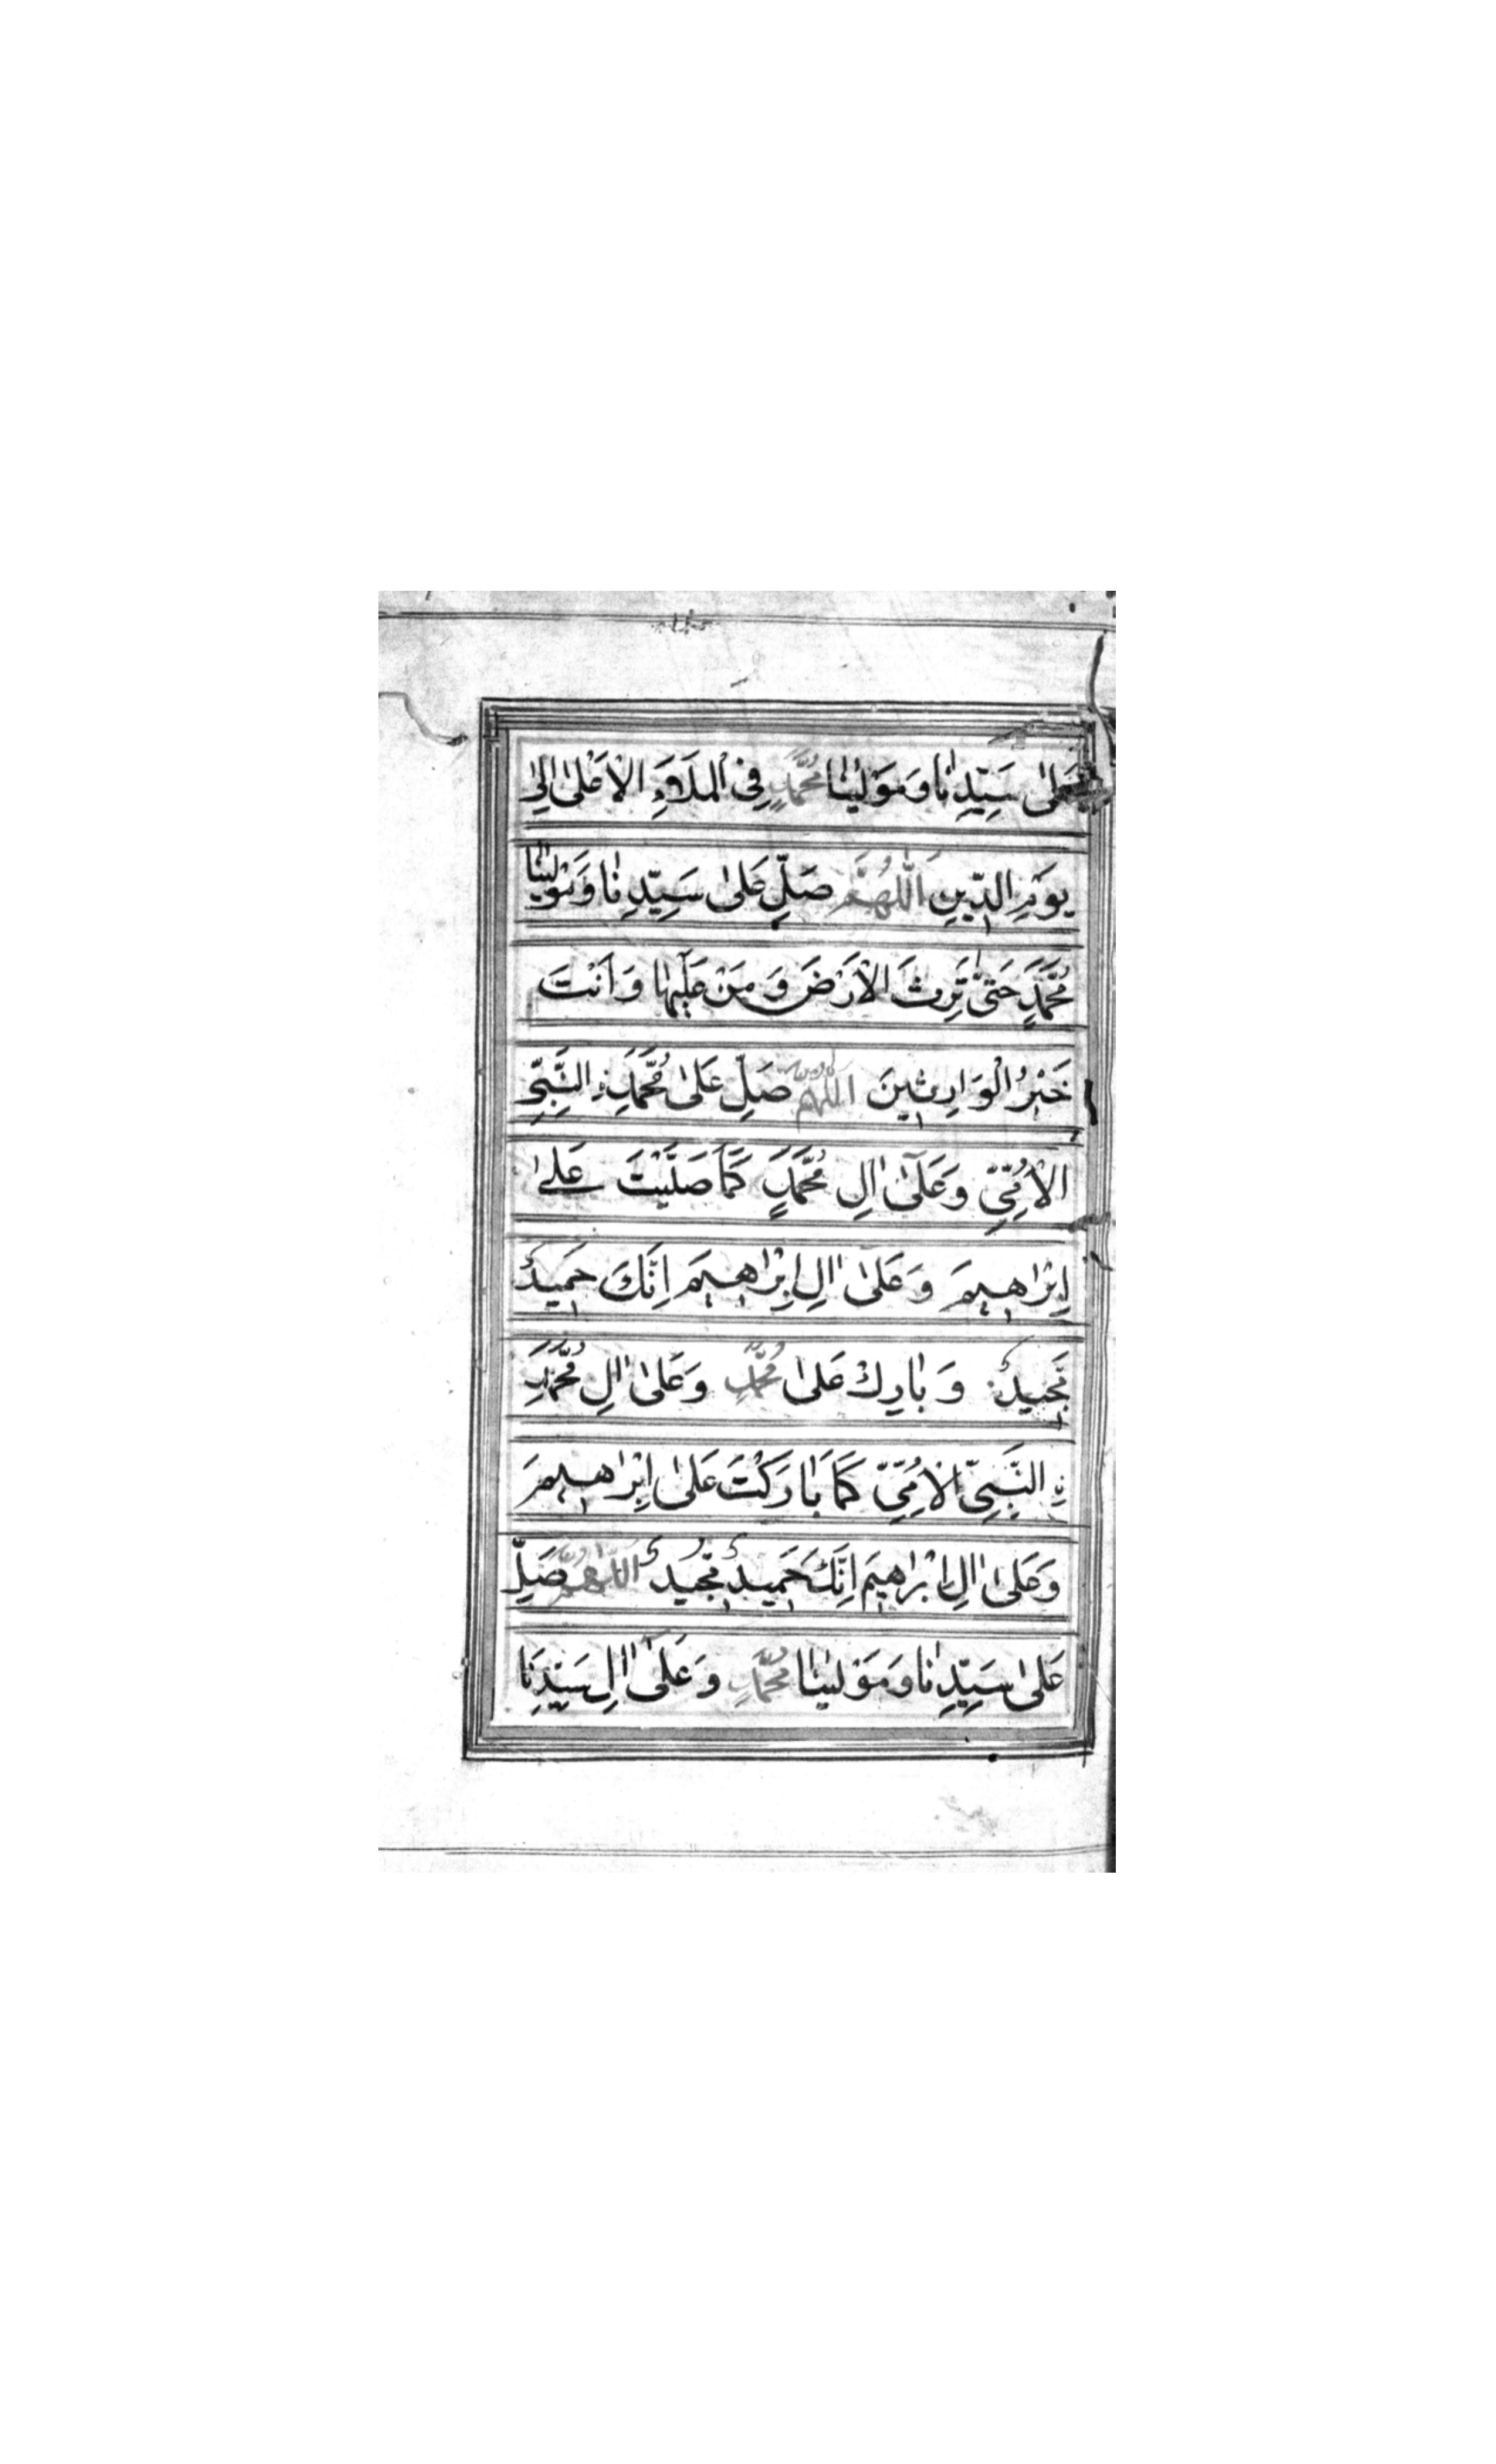 عَلىٰ سَيِّدِنَا وَمَوْلٰينَا مُحَمَّدٍ فِي الْمَلَاءِ الْاَعْلىٰ اِلىٰ
يَوْمِ الدِّينِ اَللّٰهُمَّ صَلِّ عَلىٰ سَيِّدِنَا وَمَوْلٰينَا
مُحَمَّدٍ حَتّىٰ تَرِثَ الْاَرْضَ وَمَنْ عَلَيْهَا وَاَنْتَ
خَيْرُ الْوَارِثِينَ اللّٰهُمَّ صَلِّ عَلىٰ مُحَمَّدِ نِ النَّبِيِّ
الْاُمِّيِّ وَعَلىٰٓ اٰلِ مُحَمَّدٍ كَمَا صَلَّيْتَ عَلىٰ
اِبْرَاهِيمَ وَعَلىٰٓ اٰلِ اِبْرَاهِيمَ اِنَّكَ حَمِيدٌ
مَّجِيدٌ وَبَارِكْ عَلىٰ مُحَمَّدٍ وَعَلىٰٓ اٰلِ مُحَمَّدِ
نِ النَّبِيِّ الْاُمِّيِّ كَمَا بَارَكْتَ عَلىٰ اِبْرَاهِيمَ
وَعَلىٰٓ اٰلِ اِبْرَاهِيمَ اِنَّكَ حَمِيدٌ مَّجِيدٌ اَللّٰهُمَّ صَلِّ
عَلىٰ سَيِّدِنَا وَمَوْلٰينَا مُحَمَّدٍ وَعَلىٰٓ اٰلِ سَيِّدِنَا